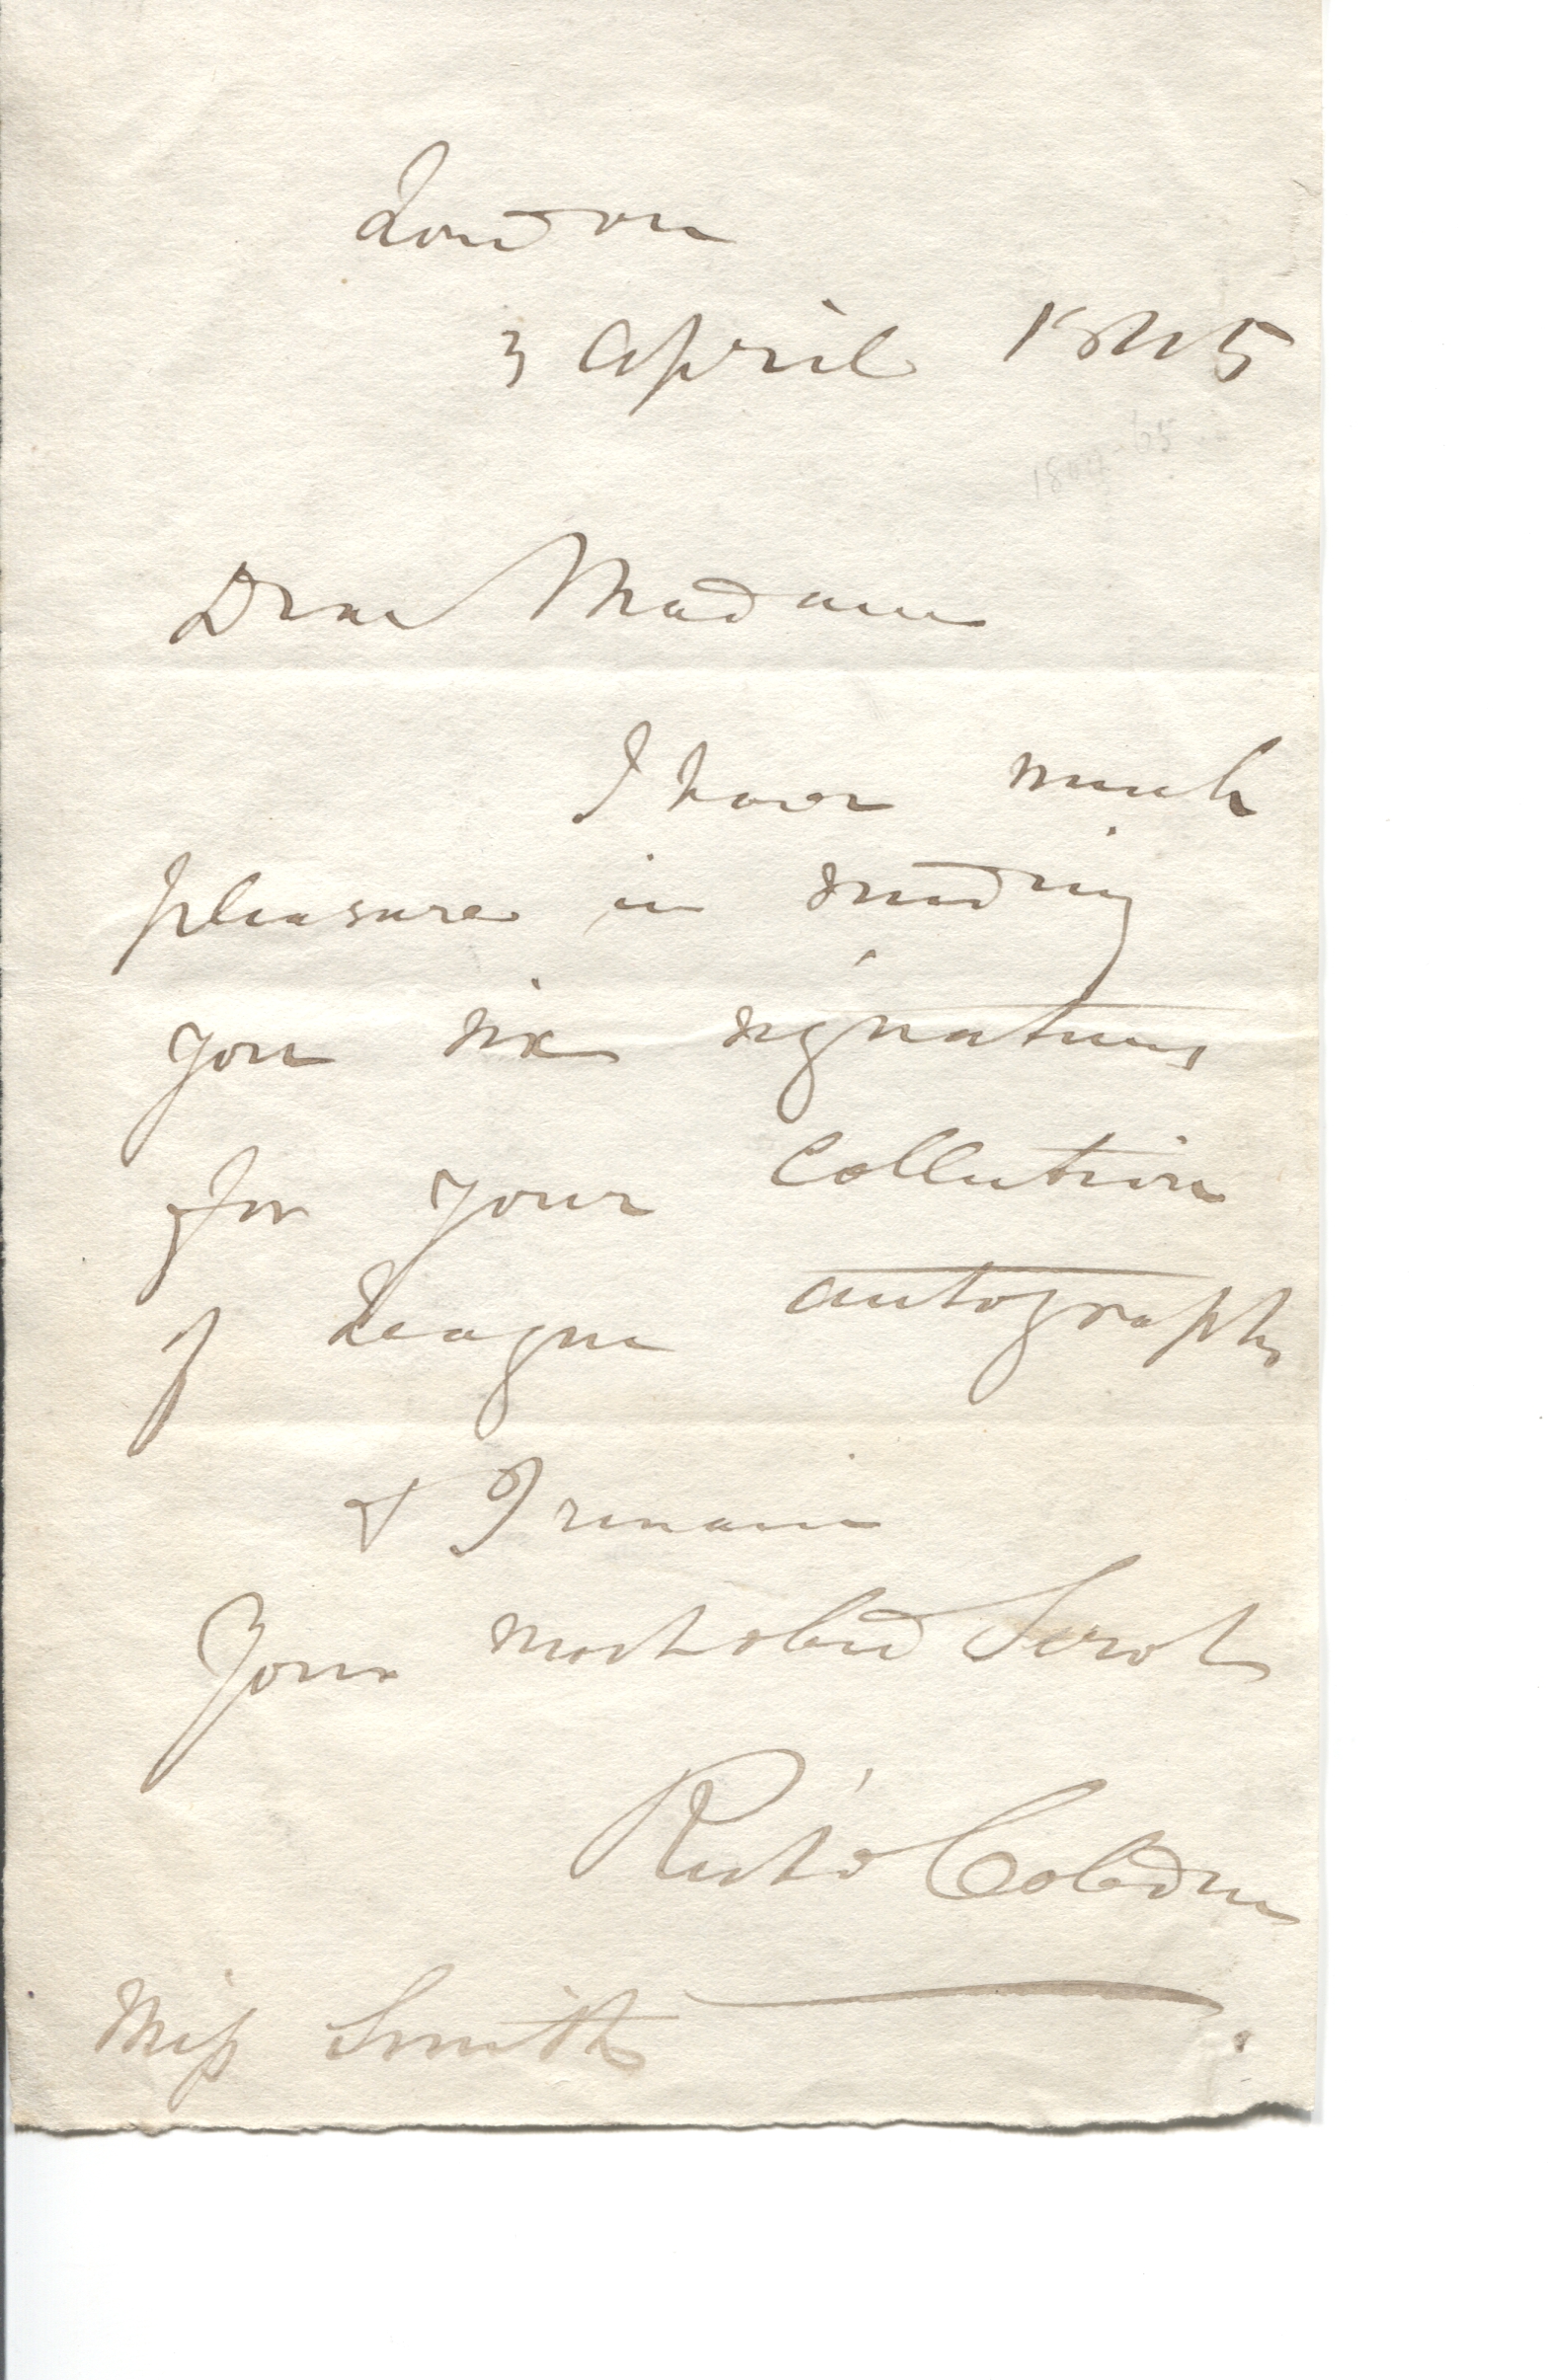 London
3 April 1845
Dear Madam
I have much
pleasure in sending
you six signatures
for your collection
of League autographs
& I remain
Your most obed Servt
Richd Cobden
Miss Smith